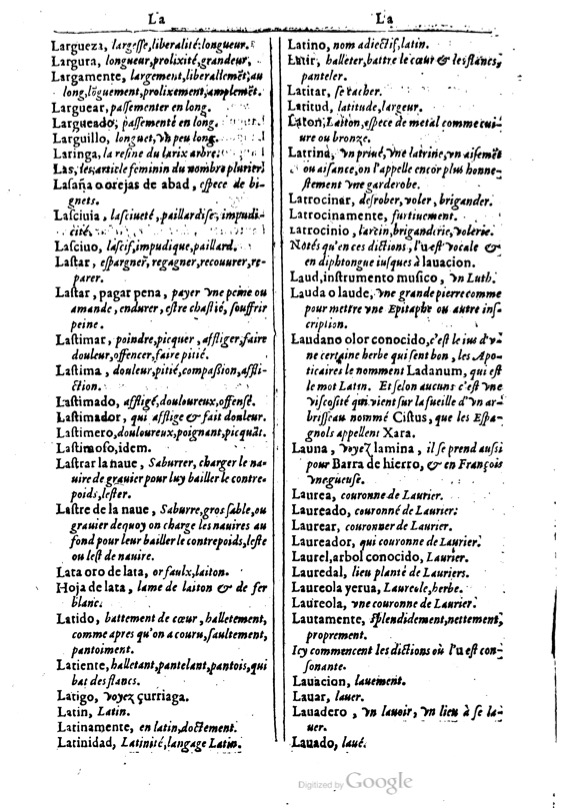 La
Largueza, largesse, liberalité: longueur.
Largura, longueur, prolixité, grandeur.
Largamente, largement, liberallemẽt; au
long, lõguement, prolixement, amplemẽt.
Larguear, passementer en long.
Largueado, passementé en long.
Larguillo, longuet, vn peu long.
Laringa, la resine du larix arbre.
Las, les; article feminin du nombre plurier.
Lasaña o orejas de abad, espece de bi-
gnets.
Lasciuia, lasciueté, paillardise, impudi-
cité.
Lasciuo, lascif, impudique, paillard.
Lastar, espargner, regagner, recouurer, re-
parer.
Lastar, pagar pena, payer vne peine ou
amande, endurer, estre chastié, souffrir
peine.
Lastimar, poindre, picquer, affliger, faire
douleur, offencer, faire pitié.
Lastima, douleur, pitié, compassion, affli-
ction.
Lastimado, affligé, douloureux, offensé.
Lastimador, qui afflige & fait douleur.
Lastimero, douloureux, poignant, picquãt.
Lastimoso, idem.
Lastrar la naue, Saburrer, charger le na-
uire de grauier pour luy bailler le contre-
poids, lester.
Lastre de la naue, Saburre, gros sable, ou
grauier dequoy on charge les nauires au
fond pour leur bailler le contrepoids, leste
ou lest de nauire.
Lata oro de lata, or faulx, laiton.
Hoja de lata, lame de laiton & de fer
blanc.
Latido, battement de cœur, halletement,
comme apres qu'on a couru, saultement,
pantoiment.
Latiente, halletant, pantelant, pantois, qui
bat des flancs.
Latigo, voyez çurriaga.
Latin, Latin.
Latinamente, en latin, doctement.
Latinidad, Latinité, langage Latin.
La
Latino, nom adiectif, latin.
Latir, halleter, battre le cœur & les flancs,
panteler.
Latitar, se cacher.
Latitud, latitude, largeur.
Laton, Laiton, espece de metal comme cui-
ure ou bronze.
Latrina, vn priué, vne latrine, vn aisemẽt
ou aisance, on l'appelle encor plus honne-
stement vne garderobe.
Latrocinar, desrober, voler, brigander.
Latrocinamente, furtiuement.
Latrocinio, larcin, briganderie, volerie.
Notés qu'en ces dictions, l'u est vocale &
en diphtongue iusques à lauacion.
Laud, instrumento musico, vn Luth.
Lauda o laude, vne grande pierre comme
pour mettre vne Epitaphe ou autre ins-
cription.
Laudano olor conocido, c'est le ius d'v-
ne certaine herbe qui sent bon, les Apo-
ticaires le nomment Ladanum, qui est
le mot Latin. Et selon aucuns c'est vne
viscosité qui vient sur la fueille d'vn ar-
brisseau nommé Cistus, que les Espa-
gnols appellent Xara.
Launa, voyez lamina, il se prend aussi
pour Barra de hierro, & en François
vne gueuse.
Laurea, couronne de Laurier.
Laureado, couronné de Laurier.
Laurear, couronner de Laurier.
Laureador, qui couronne de Laurier.
Laurel, arbol conocido, Laurier.
Lauredal, lieu planté de Lauriers.
Laureola yerua, Laureole, herbe.
Laureola, vne couronne de Laurier.
Lautamente, splendidement, nettement,
proprement.
Icy commencent les dictions où l'u est con-
sonante.
Lauacion, lauement.
Lauar, lauer.
Lauadero, vn lauoir, vn lieu à se la-
uer.
Lauado, laué.
Digitized by Google